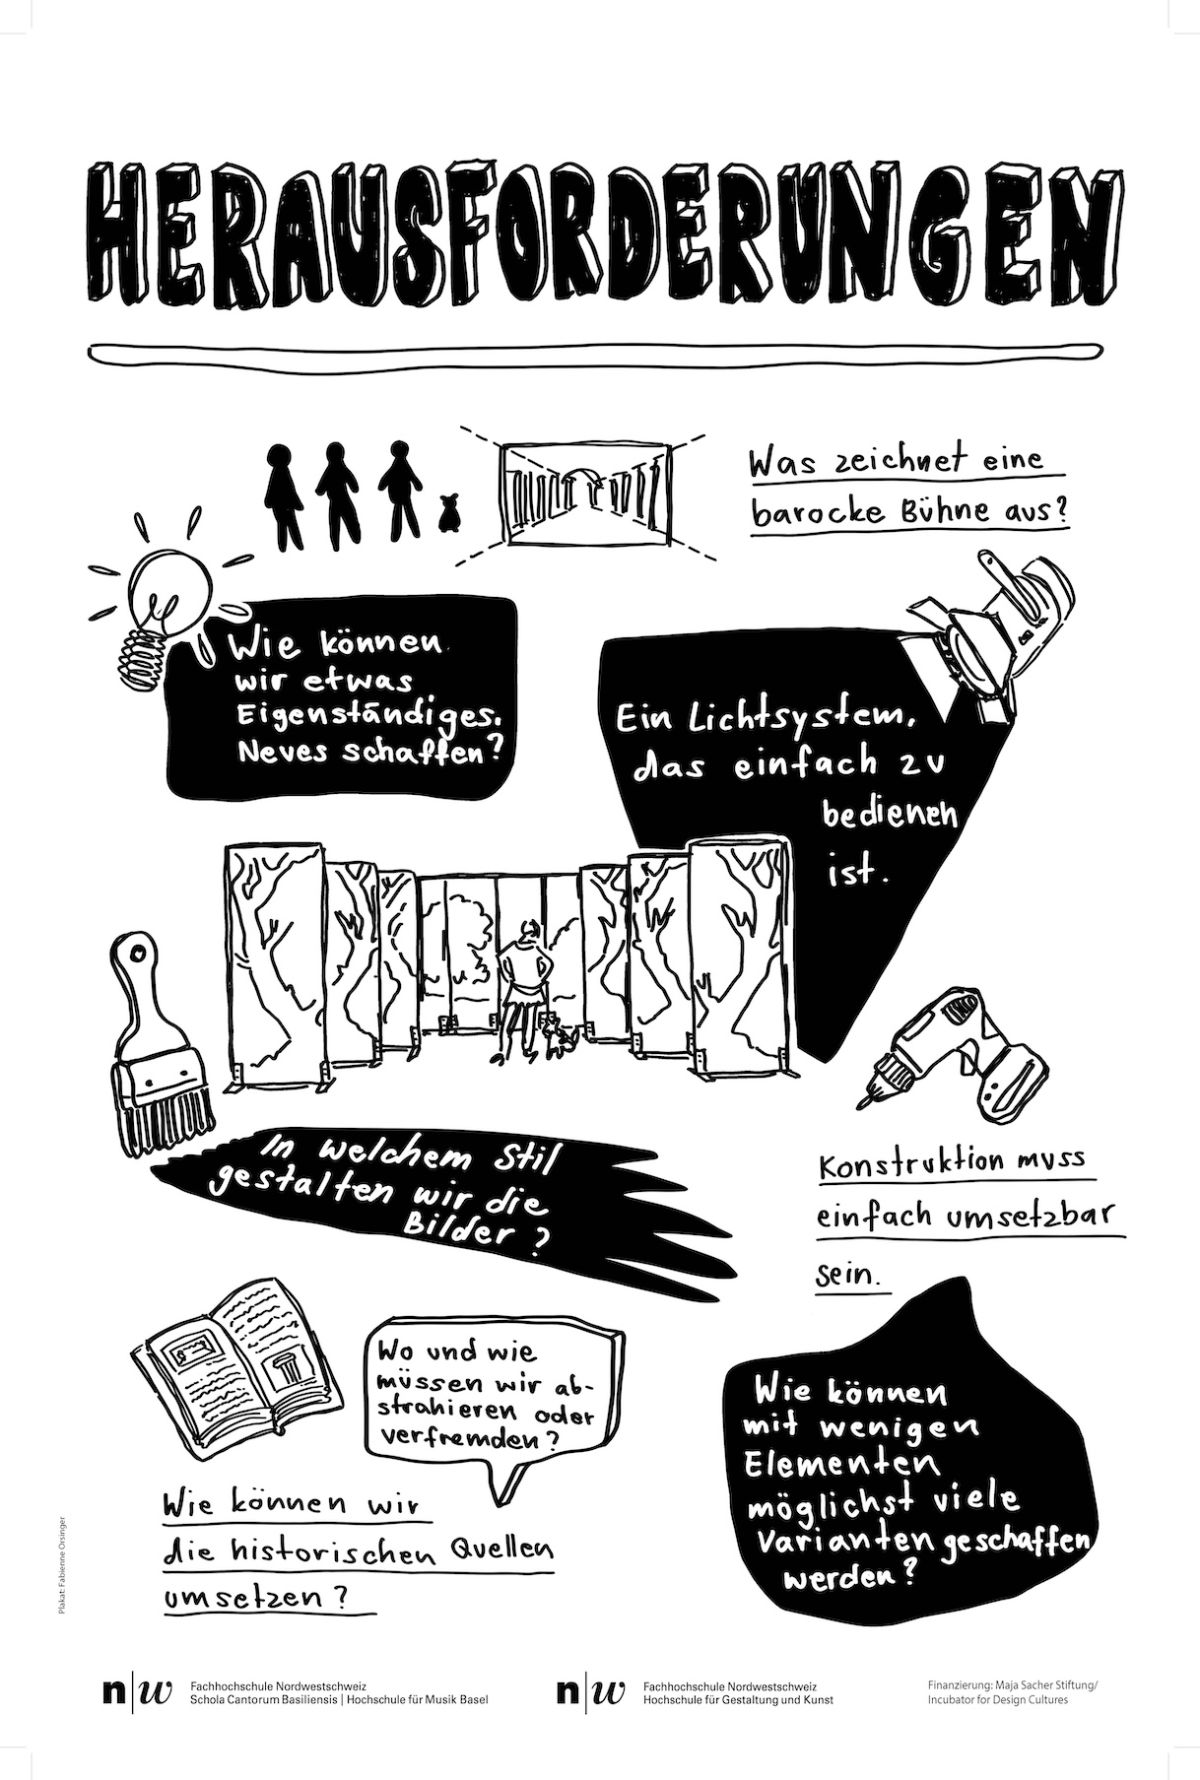 HERAUSFORDERUNGEN
Was zeichnet eine
barocke Bühne aus?
Wie können
wir etwas
Eigenständiges,
Neues schaffen?
Ein Lichtsystem,
das einfach zu
bedienen
ist.
In welchem Stil
gestalten wir die
Bilder?
Konstruktion muss
einfach umsetzbar
sein.
Wo und wie
müssen wir ab-
strahieren oder
verfremden?
Wie können wir
die historischen Quellen
umsetzen?
Wie können
mit wenigen
Elementen
möglichst viele
Varianten geschaffen
werden?
Plakat: Fabienne Orsinger
n|w
Fachhochschule Nordwestschweiz
Schola Cantorum Basiliensis | Hochschule für Musik Basel
n|w
Fachhochschule Nordwestschweiz
Hochschule für Gestaltung und Kunst
Finanzierung: Maja Sacher Stiftung/
Incubator for Design Cultures